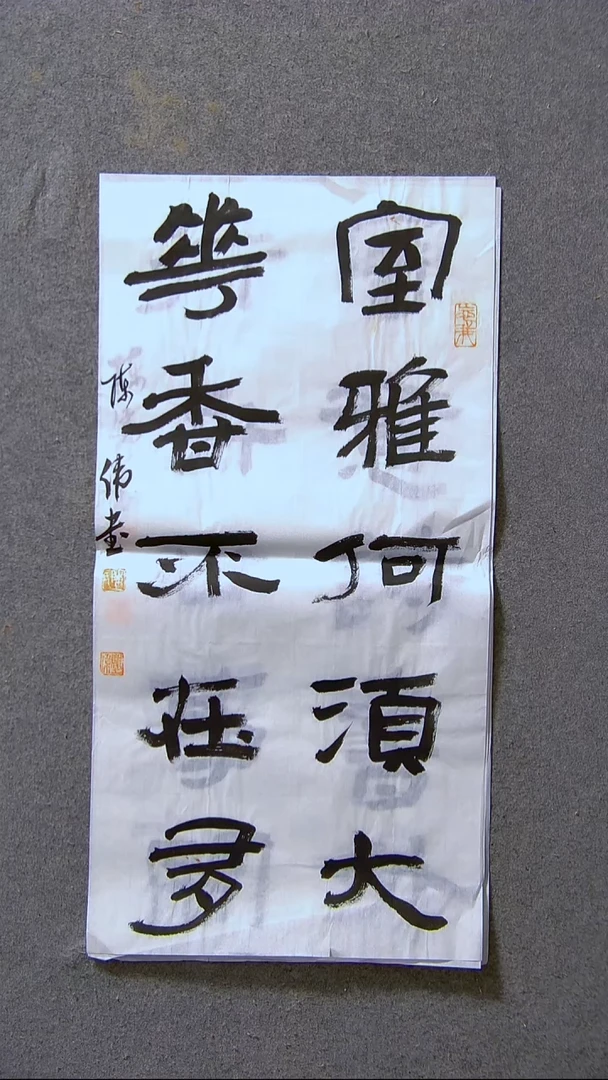 室雅何須大
華香不在多
陈伟书